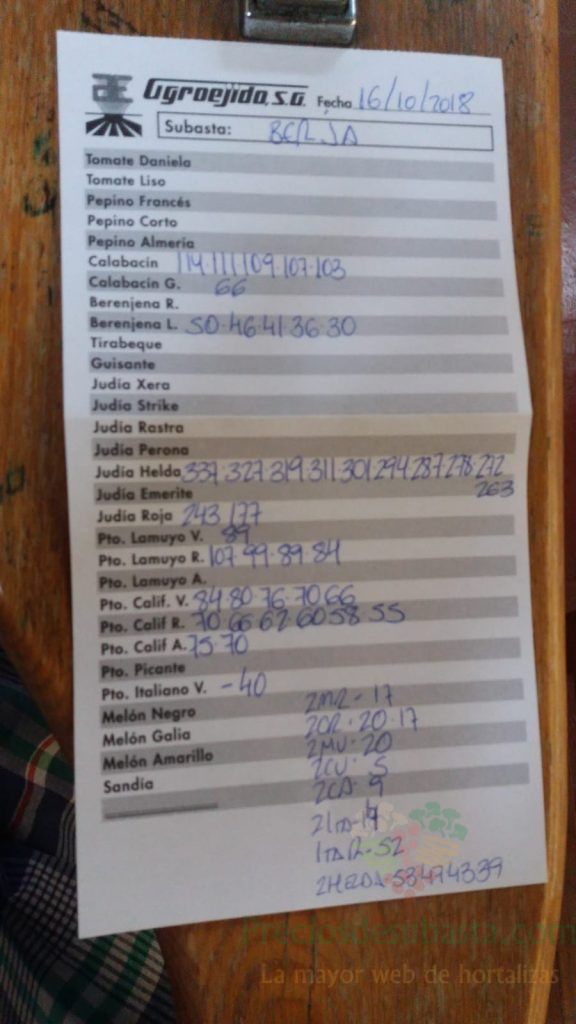 Agroejido, S.A. Fecha 16/10/2018
Subasta: BERJA
Tomate Daniela
Tomate Liso
Pepino Francés
Pepino Corto
Pepino Almería
Calabacín 114.111.109.107.103
Calabacín G. 66
Berenjena R.
Berenjena L. 50.46.41.36.30
Tirabeque
Guisante
Judía Xera
Judía Strike
Judía Rastra
Judía Perona
Judía Helda 337.327.319.311.301.294.287.278.272
263
Judía Emerite
Judía Roja 243.177
Pto. Lamuyo V. 89
Pto. Lamuyo R. 107.99.89.84
Pto. Lamuyo A.
Pto. Calif. V. 84.80.76.70.66
Pto. Calif R. 70.66.62.60.58.55
Pto. Calif A. 75.70
Pto. Picante
Pto. Italiano V. -40
Melón Negro 2MR-17
Melón Galia 2CR.20.17
Melón Amarillo 2MU.20
Sandía 2CU.5
2CA.9
2ITA-19
1TAR-52
2HELDA-53474339
Preciosdesubasta.com
La mayor web de hortalizas